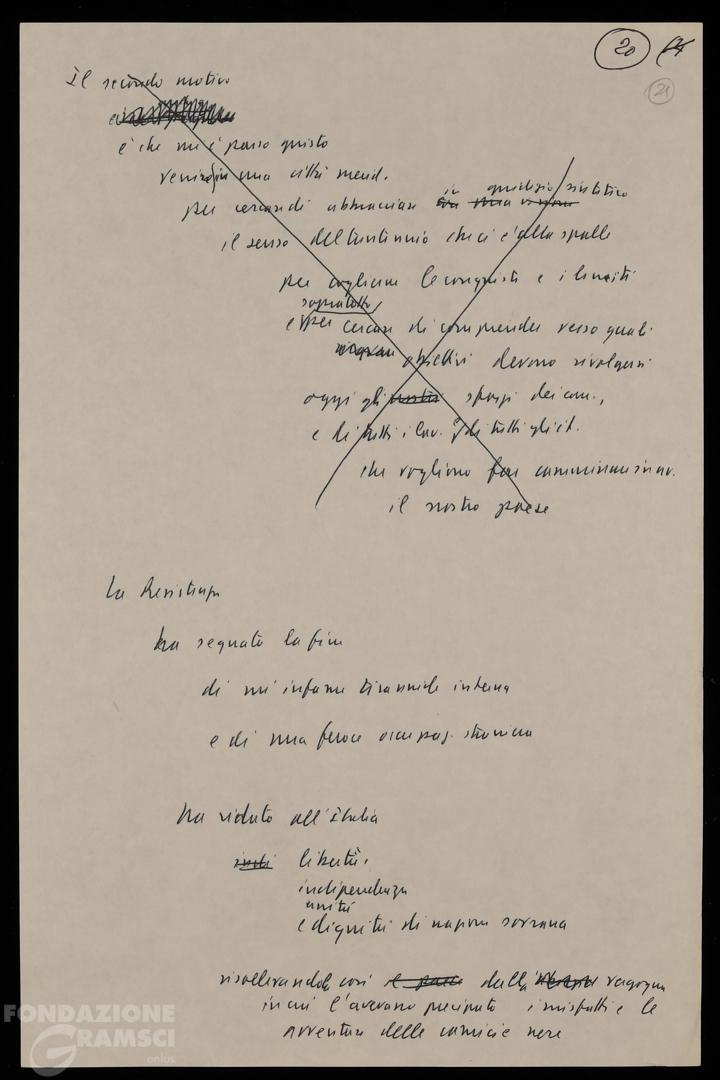 20
21
Il secondo motivo
è che mi è parso giusto
venire in una città merid.
per cercare di abbracciare in giudizio sintetico
in una visione
il senso del trentennio che ci è alle spalle
per coglierne le conquiste e i limiti
soprattutto
e per cercare di comprendere verso quali
obiettivi devono rivolgersi
oggi gli nostri sforzi dei com.,
e di tutti i lav. e di tutti gli it.
che vogliono fare camminare in av.
il nostro paese
La Resistenza
ha segnato la fine
di un'infame tirannide interna
e di una feroce occupaz. straniera
ha ridato all'Italia
libertà,
indipendenza
unità
e dignità di nazione sovrana
risollevandola così dalla vergogna
in cui l'avevano precipitato i misfatti e le
avventure delle camicie nere
FONDAZIONE
GRAMSCI
onlus